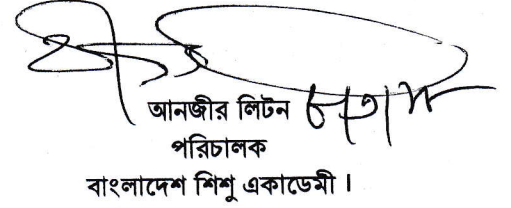 আনজীর লিটন
পরিচালক
বাংলাদেশ শিশু একাডেমী ।